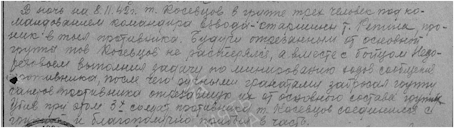 В ночь на 8.11.42г. т. Косевцов в группе трех человек под ко-
мандованием командира взвода старшины т. Репина, про-
ник в тыл противника. Будучи отрезанным от основной
группы тов Косевцов не растерялся, а вместе с бойцом
выполнил задачу по минированию ходов сообщения
противника, после чего ручными гранатами забросал группу
солдат противника отрезавшую их от основного состава группы.
Убив при этом 32 солдат противника т. Косевцов соединился с
группой и благополучно прибыл в часть.